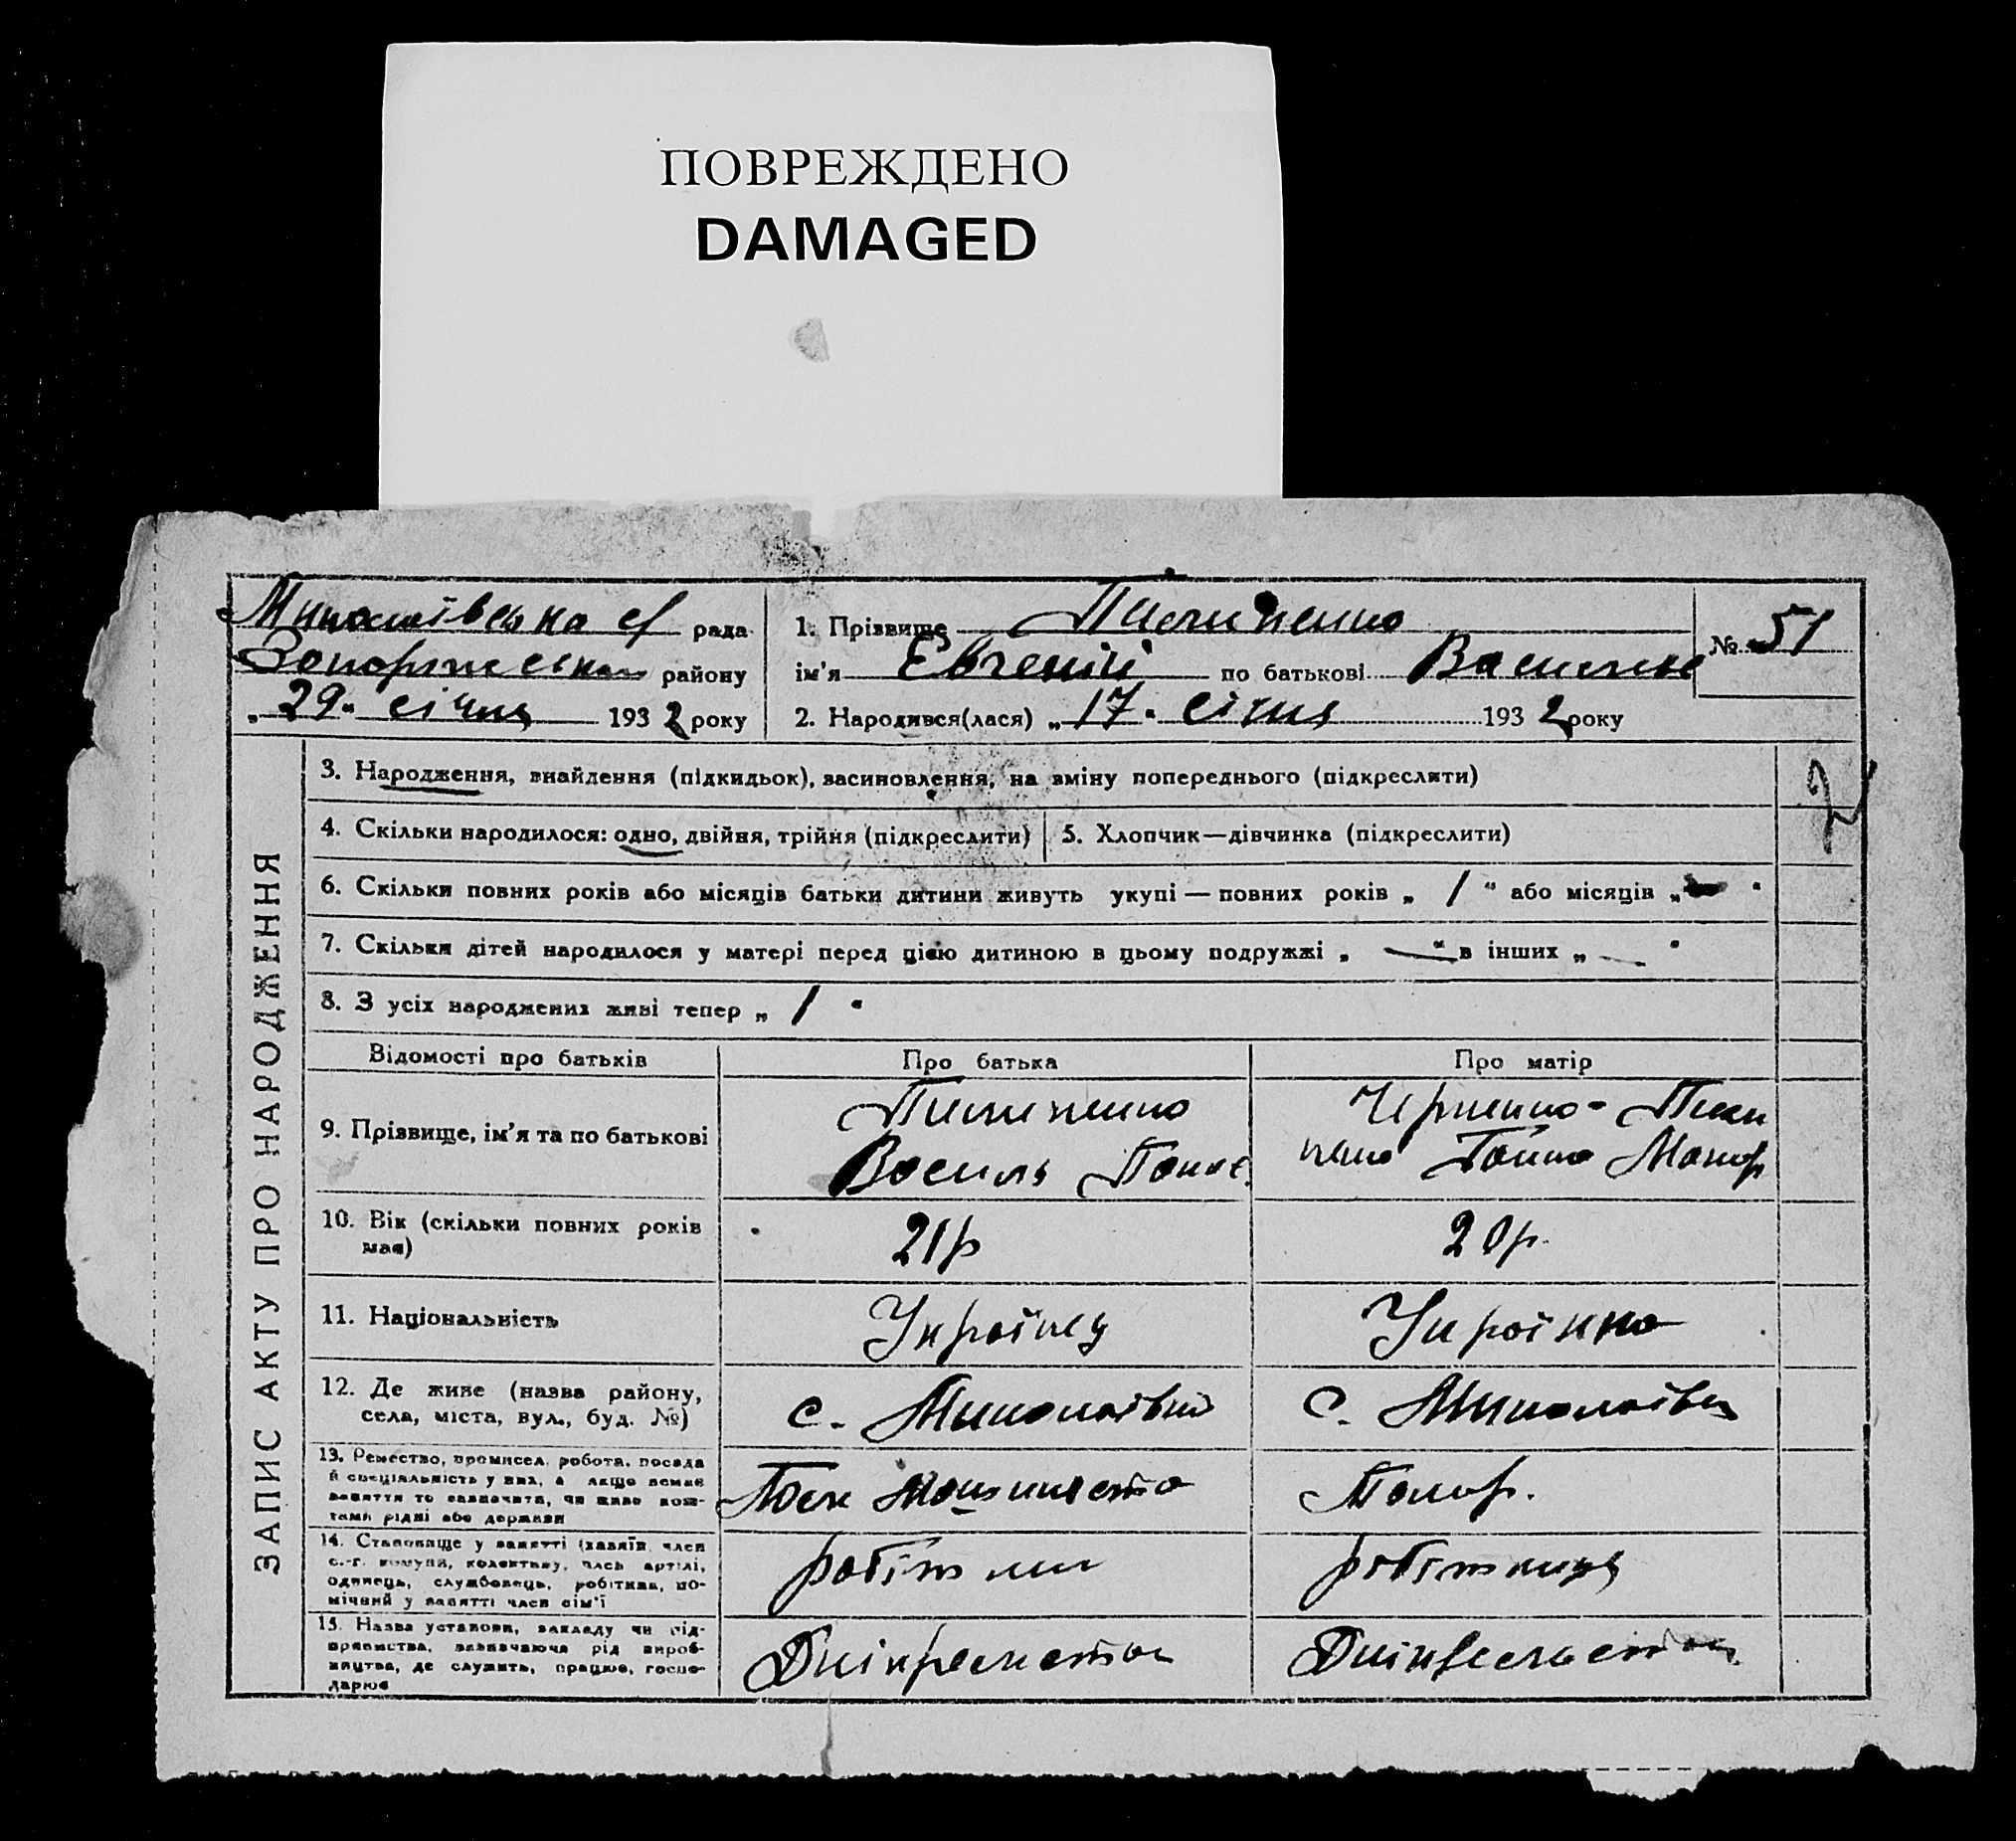 ПОВРЕЖДЕНО
DAMAGED
рада
району
„29“ січня 1932 року
1. Прізвище
ім'я Євгеній по батькові
2. Народився(лася) „17“ січня 1932 року
№ 51
ЗАПИС АКТУ ПРО НАРОДЖЕННЯ
3. Народження, знайдення (підкидьок), засиновлення, на зміну попереднього (підкреслити)
4. Скільки народилося: одно, двійня, трійня (підкреслити)
5. Хлопчик—дівчинка (підкреслити)
6. Скільки повних років або місяців батьки дитини живуть укупі — повних років „ 1 “ або місяців „ “
7. Скільки дітей народилося у матері перед цією дитиною в цьому подружжі „ — “ в інших „ — “
8. З усіх народжених живі тепер „ 1 “
Відомості про батьків
Про батька
Про матір
9. Прізвище, ім'я та по батькові
Василь
10. Вік (скільки повних років
має)
21р
20р.
11. Національність
Українец
Українка
12. Де живе (назва району,
села, міста, вул., буд. №)
с. Миколаївка
с. Миколаївка
13. Ремество, промисел, робота, посада
й спеціальність у них, а якщо немає
заняття то зазначити, чи живе кош-
тами рідні або держави
14. Становище у занятті (хазяїн, член
с.-г. комуни, колективу, член артілі,
одинець, службовець, робітник, по-
мічний у занятті член сім'ї
робітник
робітниця
15. Назва установи, закладу чи під-
приємства, зазначаючи рід вироб-
ництва, де служить, працює, госпо-
дарює